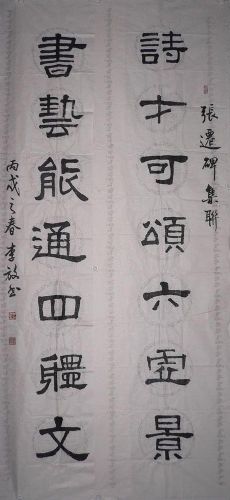 張遷碑集聯
詩才可頌六虛景
書藝能通四疆文
丙戌之春李放书